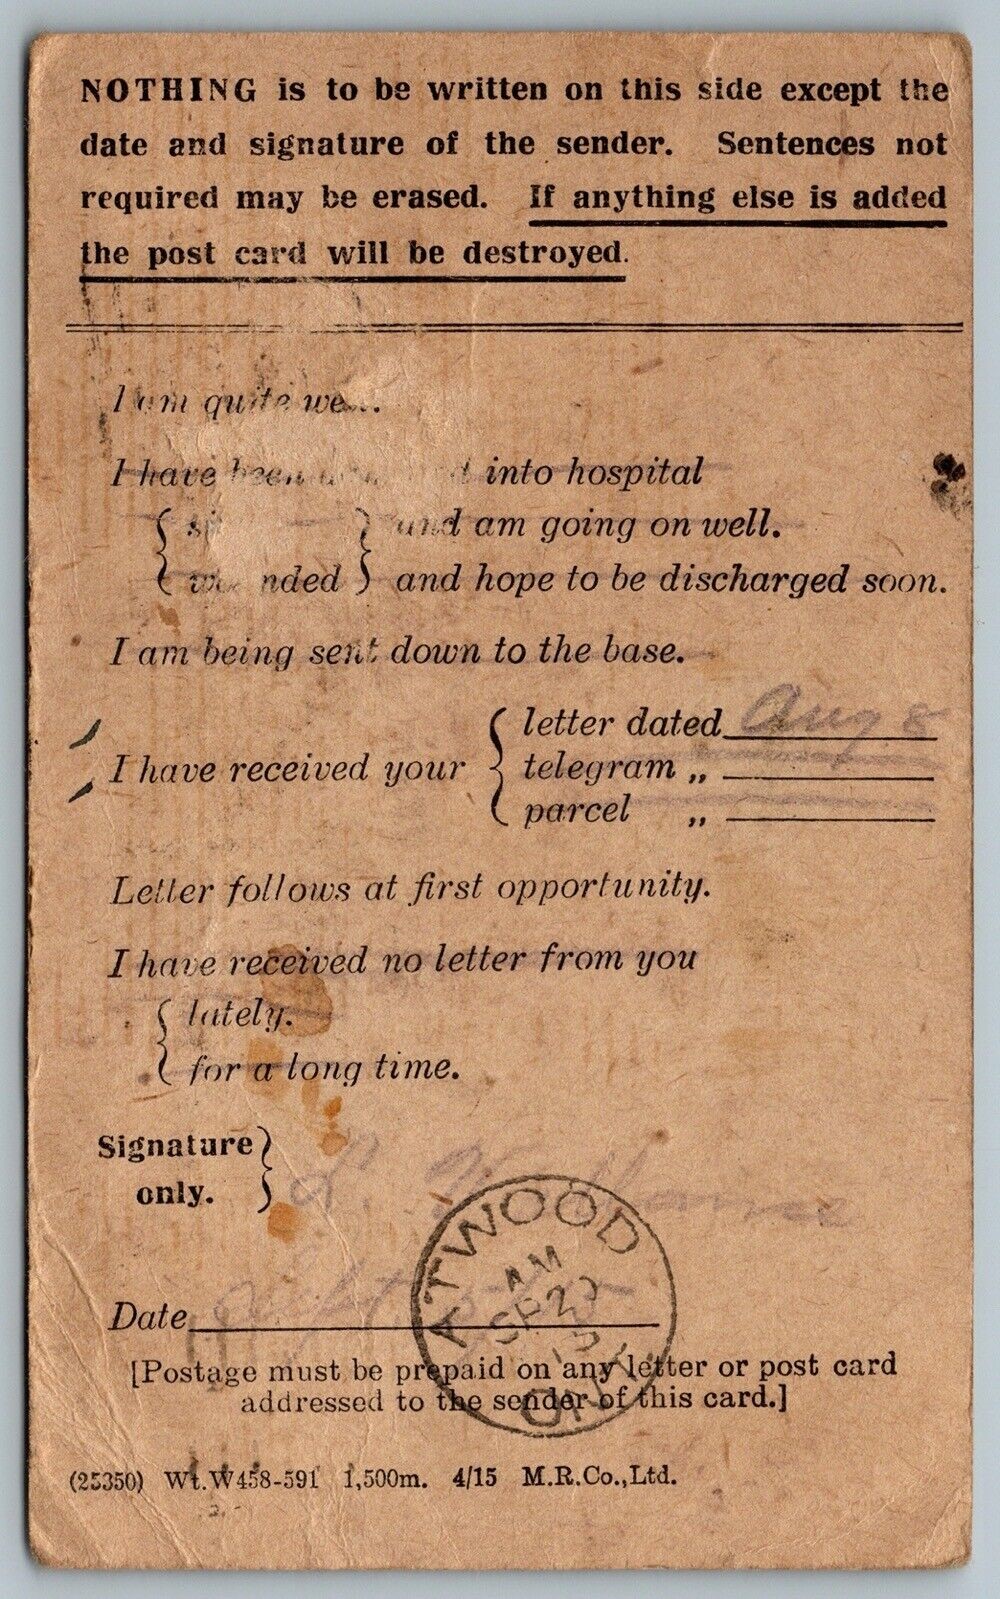 NOTHING is to be written on this side except the
date and signature of the sender. Sentences not
required may be erased. If anything else is added
the post card will be destroyed.
I am quite
I have been into hospital
and am going on well.
and hope to be discharged soon.
I am being sent down to the base.
letter dated Aug 8
I have received your telegram „
parcel „
Letter follows at first opportunity.
I have received no letter from you
lately.
for a long time.
Signature
only. L.
Date Sept
ATWOOD
AM
SP 20
ONT
[Postage must be prepaid on any letter or post card
addressed to the sender of this card.]
(25350) Wt.W458-591 1,500m. 4/15 M.R.Co.,Ltd.